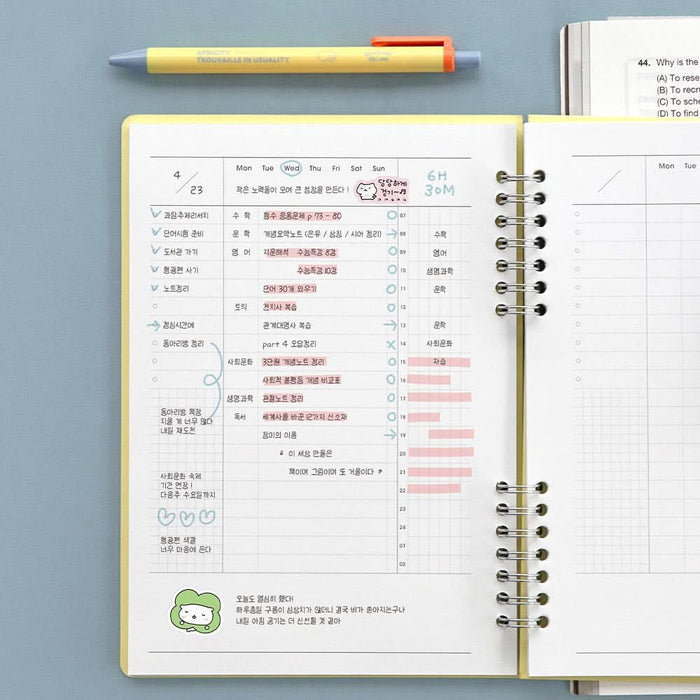 APRICITY
TROUVAILLE IN USUALITY
44. Why is the
(A) To rese
(B) To recr
(C) To sche
(D) To find
4/23
Mon Tue Wed Thu Fri Sat Sun
작은 노력들이 모여 큰 성장을 만든다!
당당하게
걷기~♪
6H
30M
Mon Tue
과탐주제리서치 수학 함수 응용문제 p 73 - 80 07
단어시험 준비 문학 개념요약노트 (은유 / 상징 / 시어 정리) 08 수학
도서관 가기 영어 지문해석 수능특강 8강 09 영어
형광펜 사기 수능특강 10강 10 생명과학
노트정리 단어 30개 외우기 11 문학
토익 전치사 복습 12
점심시간에 관계대명사 복습 13 문학
동아리방 정리 part 4 오답정리 14 사회문화
사회문화 3단원 개념노트 정리 15 자습
사회적 불평등 개념 비교표 16
생명과학 관찰노트 정리 17
독서 세계사를 바꾼 12가지 신소재 18
장미의 이름 19
# 이 세상 만물은 20
책이며 그림이며 또 거울이다 # 21
22
23
24
01
02
동아리방 복장
지울 게 너무 많다
내일 재도전
사회문화 숙제
기간 연장!
다음주 수요일까지
형광펜 색결
너무 마음에 든다
오늘도 열심히 했다!
하루종일 구름이 심상치가 않더니 결국 비가 쏟아지는구나
내일 아침 공기는 더 신선할 것 같아